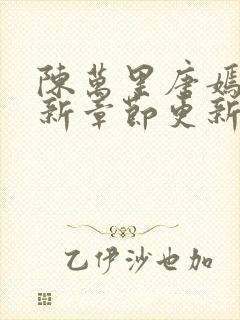 陳萬里唐嫣
新章節更新
乙伊沙也加